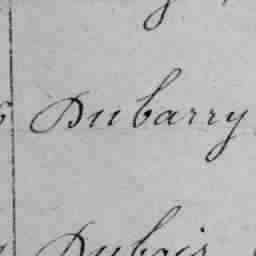 Dubarry
Dubois